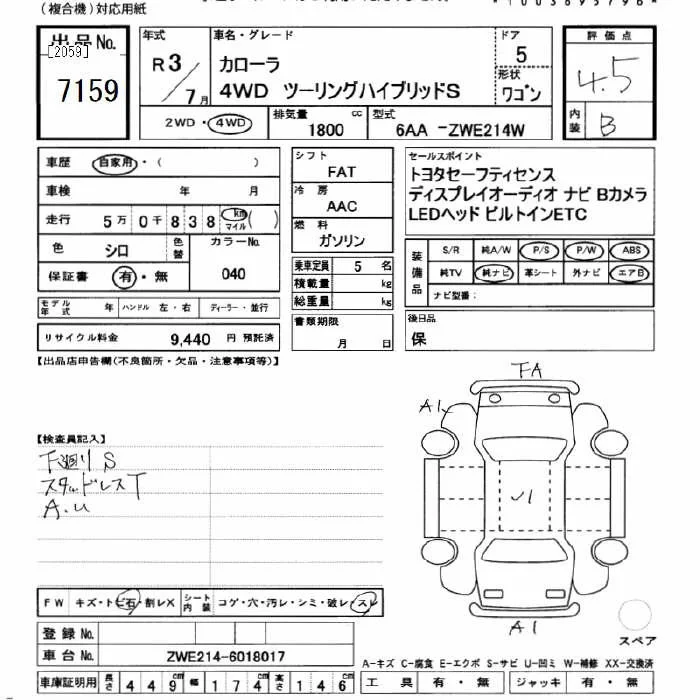 (複合機)対応用紙
出品No.
[2059]
7159
年式
R3/7月
車名・グレード
カローラ
4WD ツーリングハイブリッドS
ドア
5
形状
ワゴン
2WD・4WD
排気量
1800 cc
型式
6AA -ZWE214W
評価点
4.5
内装
B
車歴 自家用・( )
車検 年 月
走行 5万0千838 km マイル ( )
色 シロ
色替
カラーNo.
040
保証書 有・無
シフト
FAT
冷房
AAC
燃料
ガソリン
乗車定員 5 名
積載量 kg
総重量 kg
書類期限
月 日
セールスポイント
トヨタセーフティセンス
ディスプレイオーディオ ナビ Bカメラ
LEDヘッド ビルトインETC
装備品
S/R 純A/W P/S P/W ABS
純TV 純ナビ 革シート 外ナビ エアB
ナビ型番:
後日品
保
モデル年式 年 ハンドル 左・右 ディーラー・並行
リサイクル料金 9,440 円 預託済
【出品店申告欄(不良箇所・欠品・注意事項等)】
【検査員記入】
下廻りS
スタッドレスT
A.U
FA
A1
A1
FW キズ・トビ石・割レX シート内装 コゲ・穴・汚レ・シミ・破レ・スレ
登録No.
車台No. ZWE214-6018017
車庫証明用 長さ 449cm 幅 174cm 高さ 146cm
スペア
A-キズ C-腐食 E-エクボ S-サビ U-凹ミ W-補修 XX-交換済
工具 有・無 ジャッキ 有・無